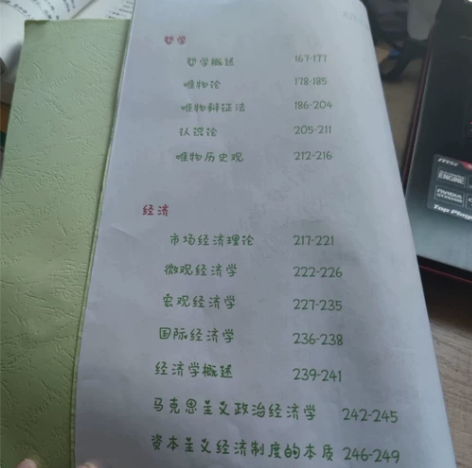 哲学
哲学概述 167-177
唯物论 178-185
唯物辩证法 186-204
认识论 205-211
唯物历史观 212-216
经济
市场经济理论 217-221
微观经济学 222-226
宏观经济学 227-235
国际经济学 236-238
经济学概述 239-241
马克思主义政治经济学 242-245
资本主义经济制度的本质 246-249
msi
NVIDIA